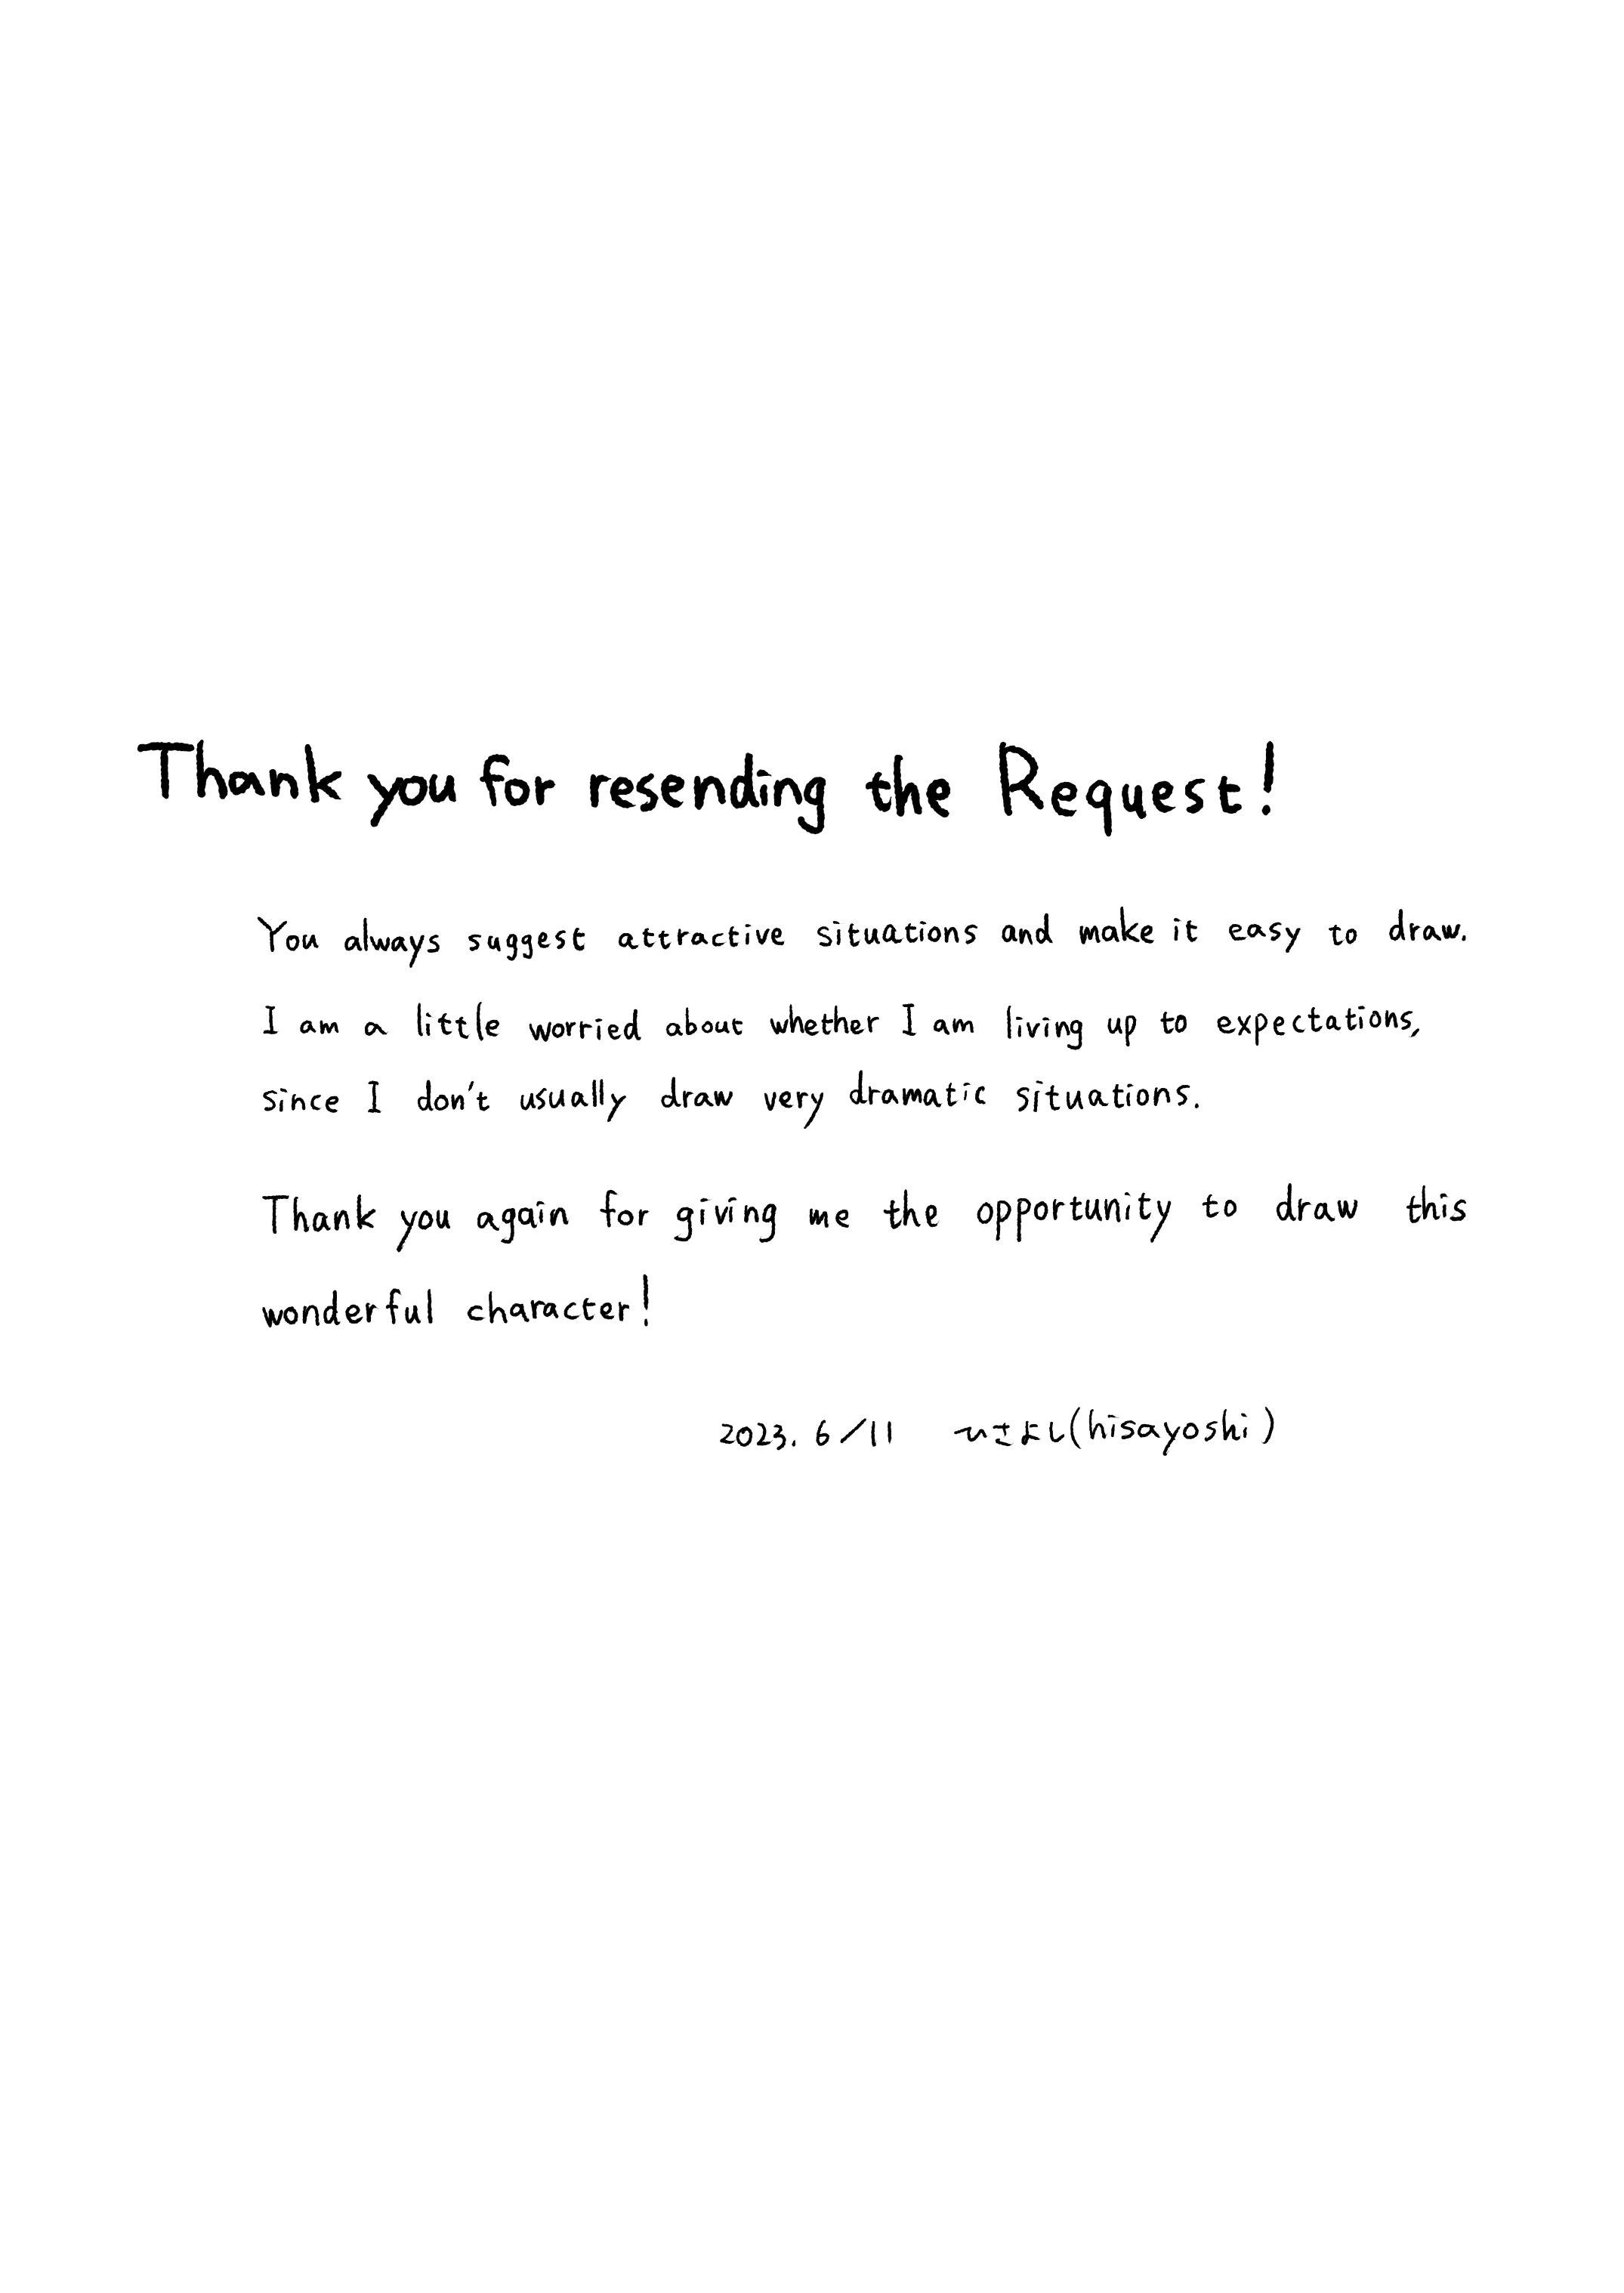 Thank you for resending the Request!
You always suggest attractive situations and make it easy to draw.
I am a little worried about whether I am living up to expectations,
since I don't usually draw very dramatic situations.
Thank you again for giving me the opportunity to draw this
wonderful character!
2023. 6/11 ひさよし(hisayoshi)